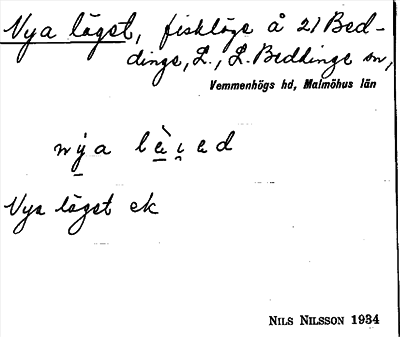 Nya läget, fiskläge å 21 Bed-
dinge, L., L. Beddinge sn,
Vemmenhögs hd, Malmöhus län
nẏa lè̱i̯ed
Nya läget ek
NILS NILSSON 1934